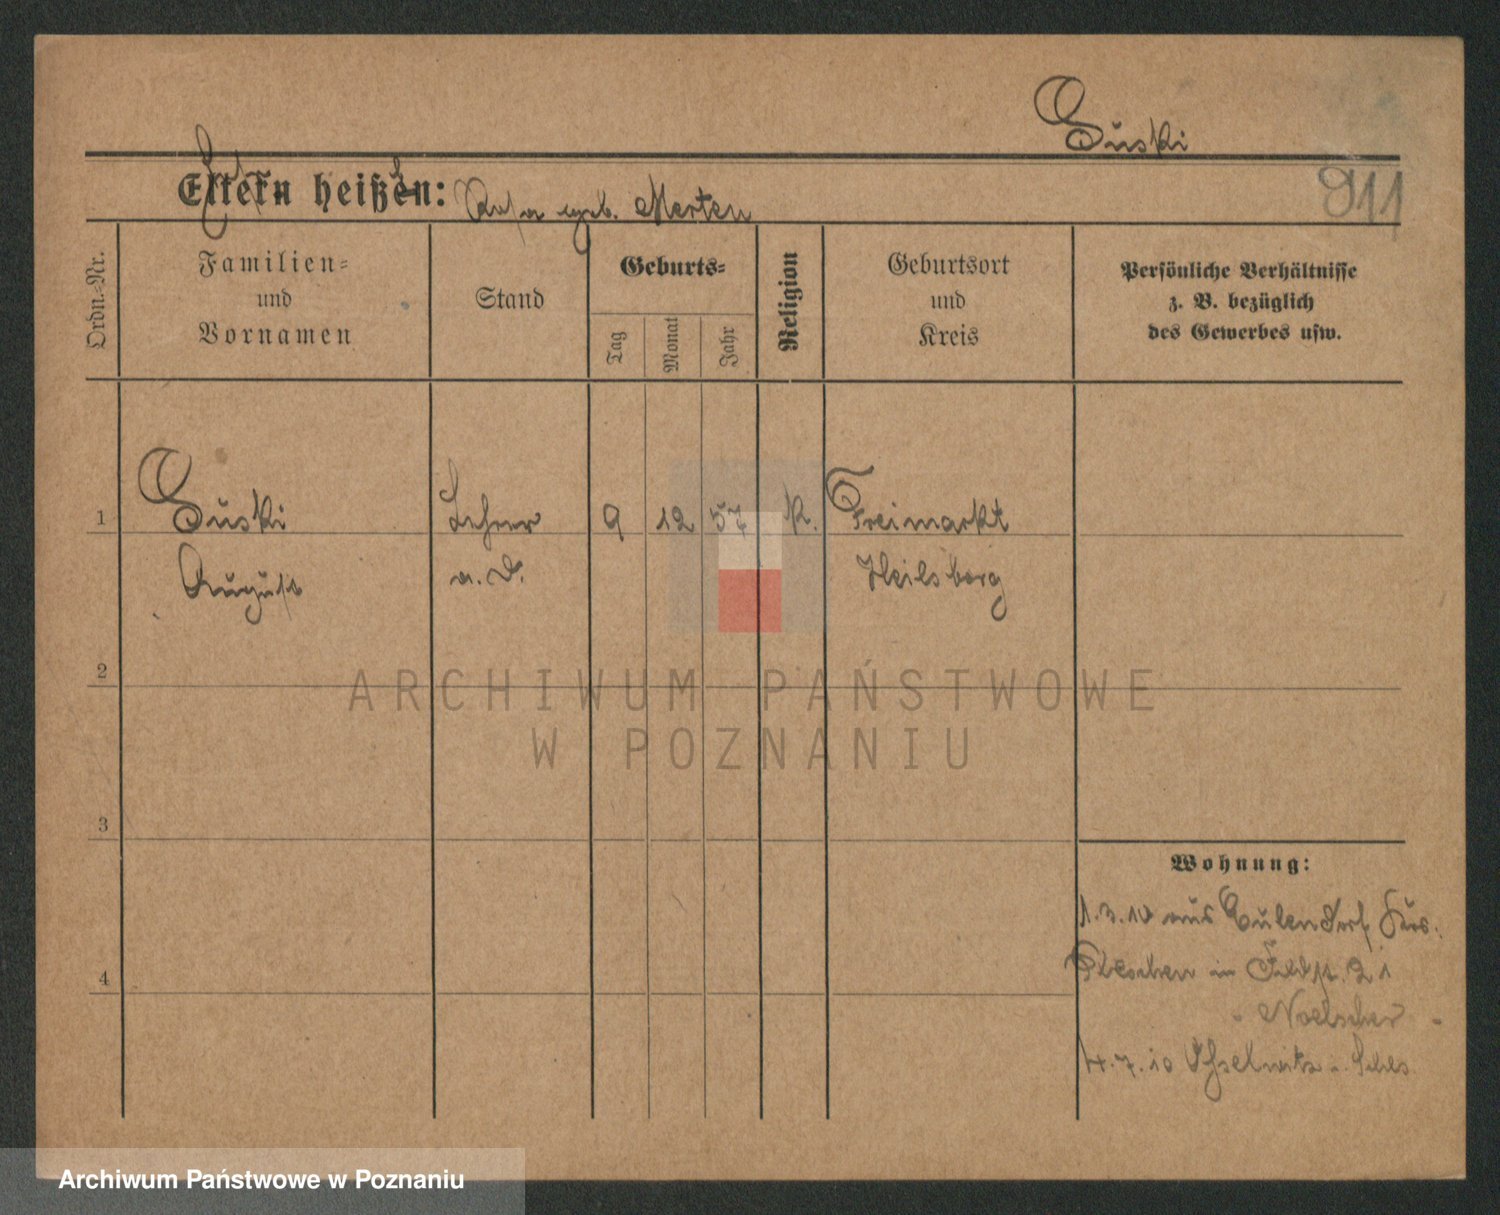 Suski
911
Eltern heißen:
geb. Merten
Ordn.-Nr.
Familien=
und
Vornamen
Stand
Geburts=
Tag
Monat
Jahr
Religion
Geburtsort
und
Kreis
Persönliche Verhältnisse
z. B. bezüglich
des Gewerbes usw.
1
Suski
Lehrer
9
12
57
K.
Freimarkt
August
a. D.
Heilsberg
2
3
4
Wohnung:
1.3.10 aus
Pleschen in 21
" Noelscher "
4.7.10
ARCHIWUM PAŃSTWOWE
W POZNANIU
Archiwum Państwowe w Poznaniu